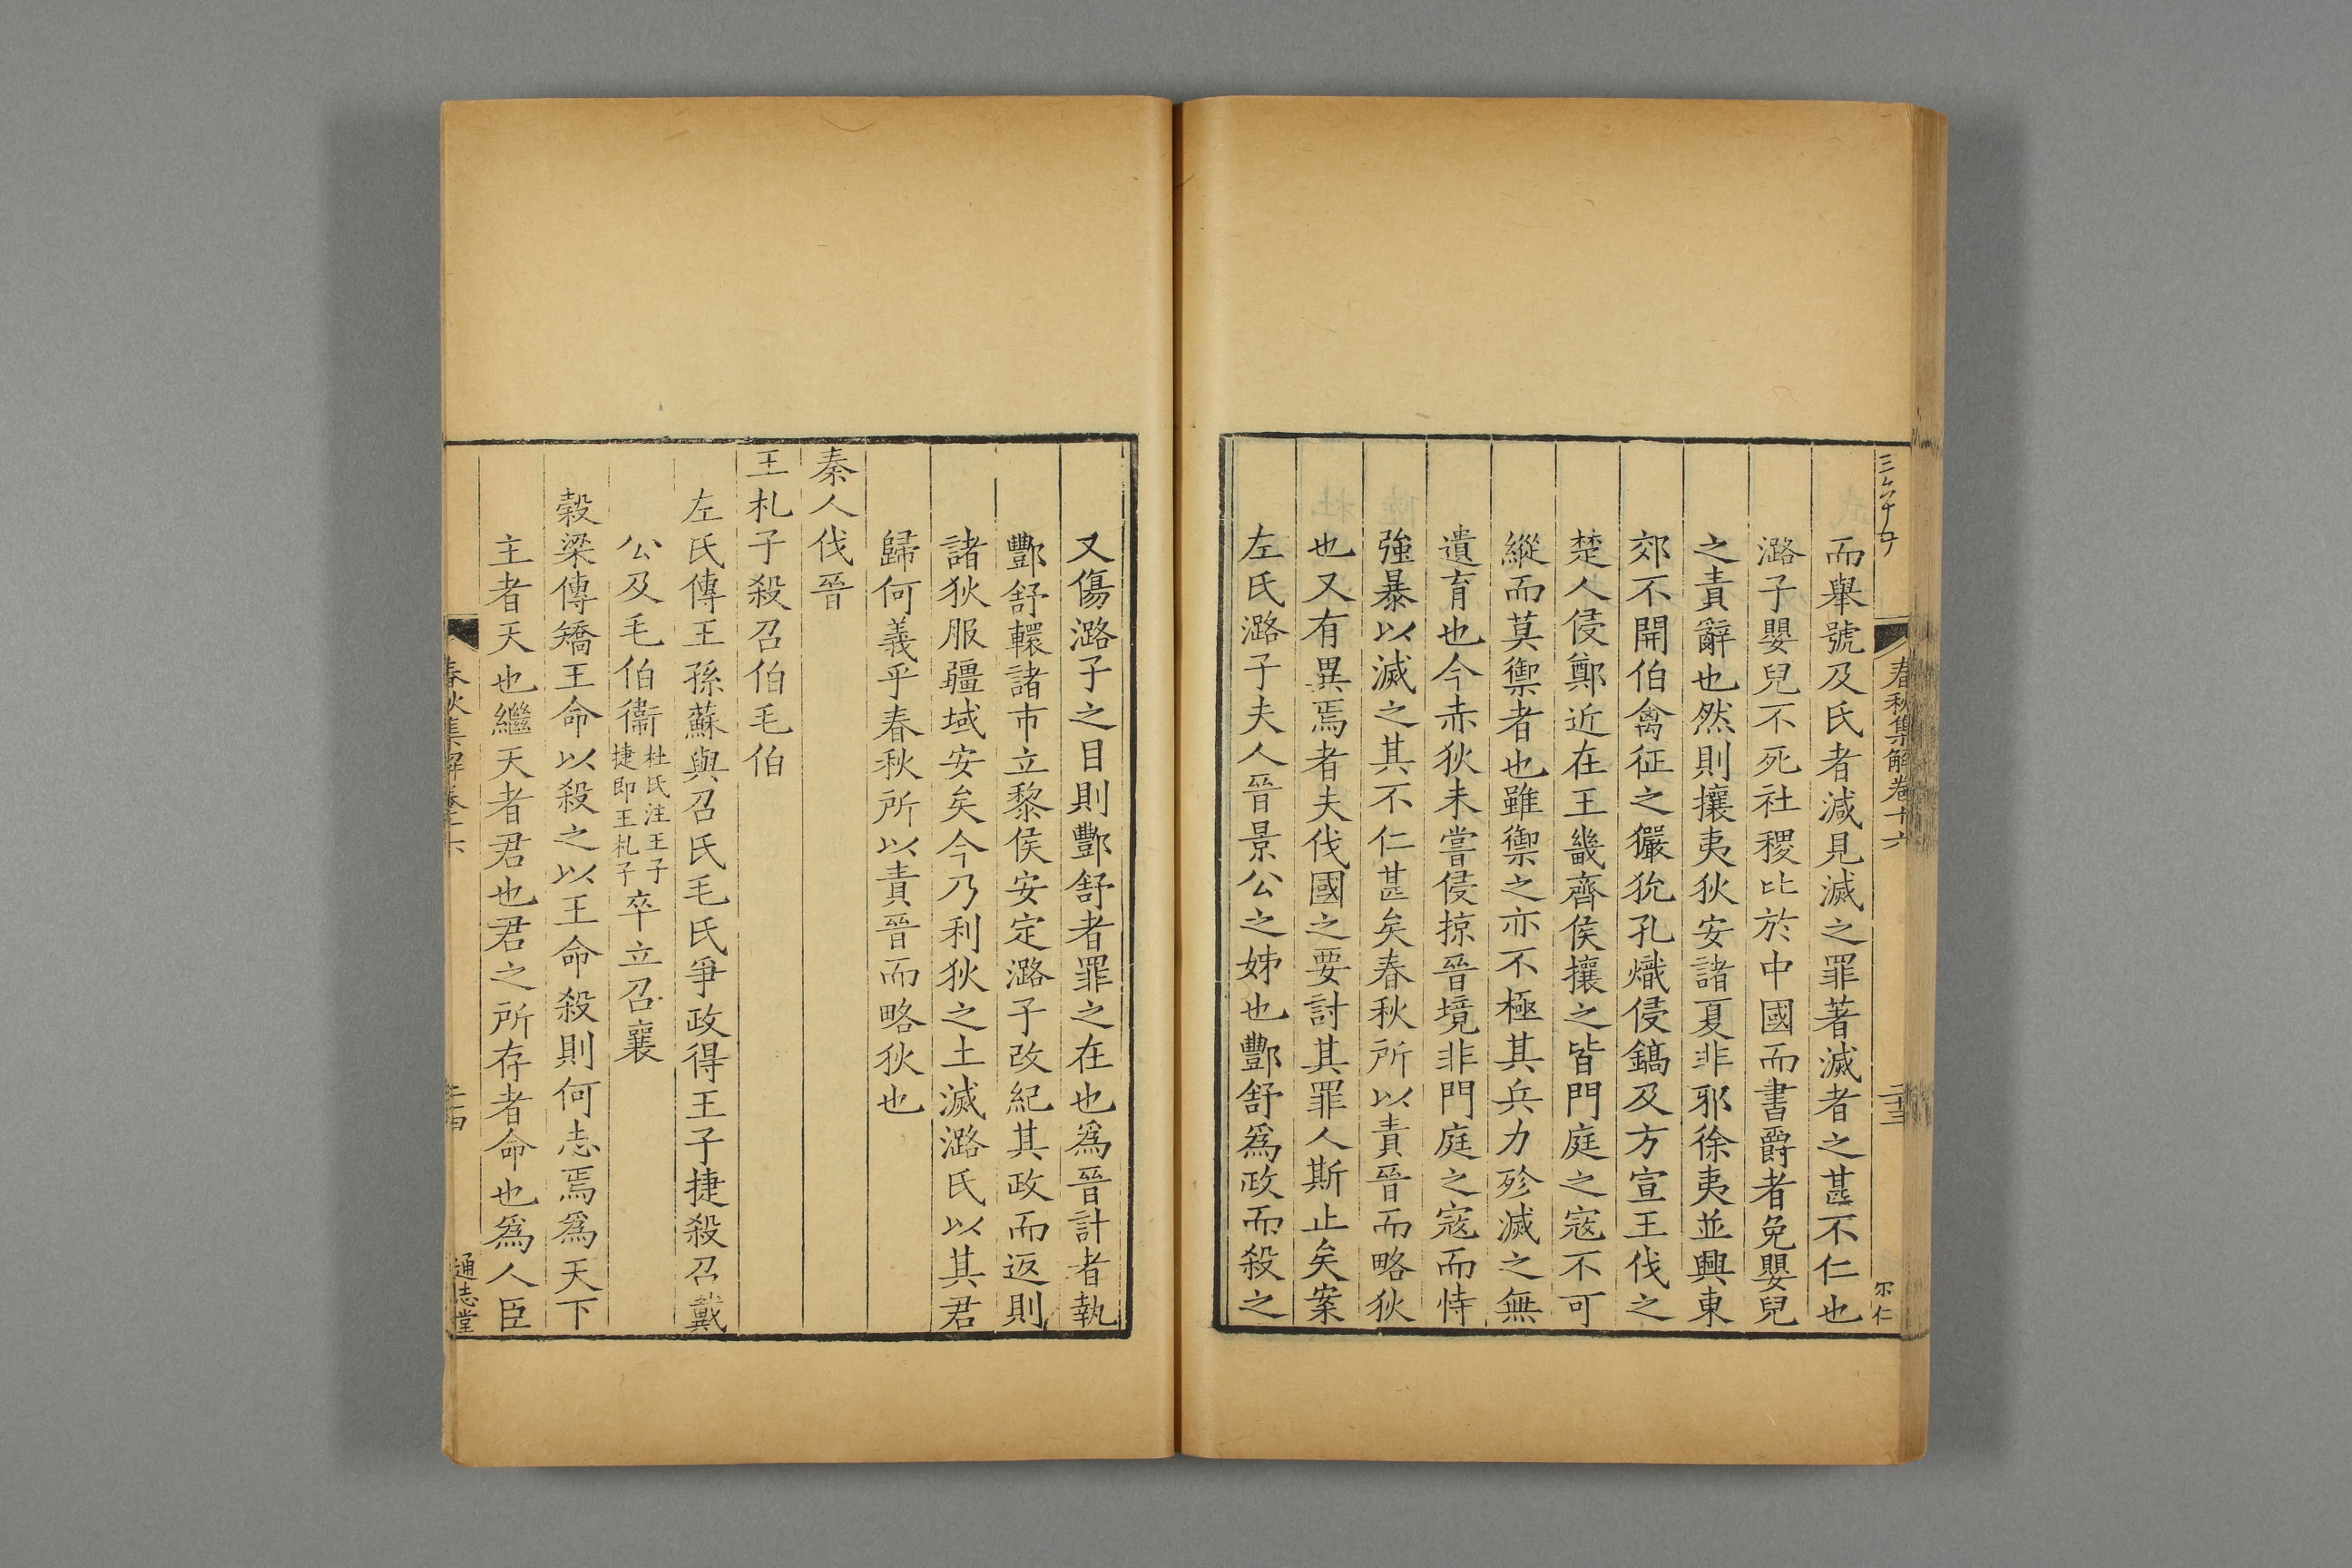 春秋集解卷十六
二十三
尔仁
而舉號及氏者減見滅之罪著滅者之甚不仁也
潞子嬰兒不死社稷比於中國而書爵者免嬰兒
之責辭也然則攘夷狄安諸夏非邪徐夷並興東
郊不開伯禽征之玁狁孔熾侵鎬及方宣王伐之
楚人侵鄭近在王畿齊侯攘之皆門庭之寇不可
縱而莫禦者也雖禦之亦不極其兵力殄滅之無
遺育也今赤狄未嘗侵掠晉境非門庭之寇而恃
強暴以滅之其不仁甚矣春秋所以責晉而略狄
也又有異焉者夫伐國之要討其罪人斯止矣案
左氏潞子夫人晉景公之姊也酆舒爲政而殺之
又傷潞子之目則酆舒者罪之在也爲晉計者執
酆舒轘諸市立黎侯安定潞子改紀其政而返則
諸狄服疆域安矣今乃利狄之土滅潞氏以其君
歸何義乎春秋所以責晉而略狄也
秦人伐晉
王札子殺召伯毛伯
左氏傳王孫蘇與召氏毛氏爭政得王子捷殺召戴
公及毛伯衞杜氏注王子捷即王札子卒立召襄
榖梁傳矯王命以殺之以王命殺則何志焉爲天下
主者天也繼天者君也君之所存者命也爲人臣
春秋集解卷十六
通志堂